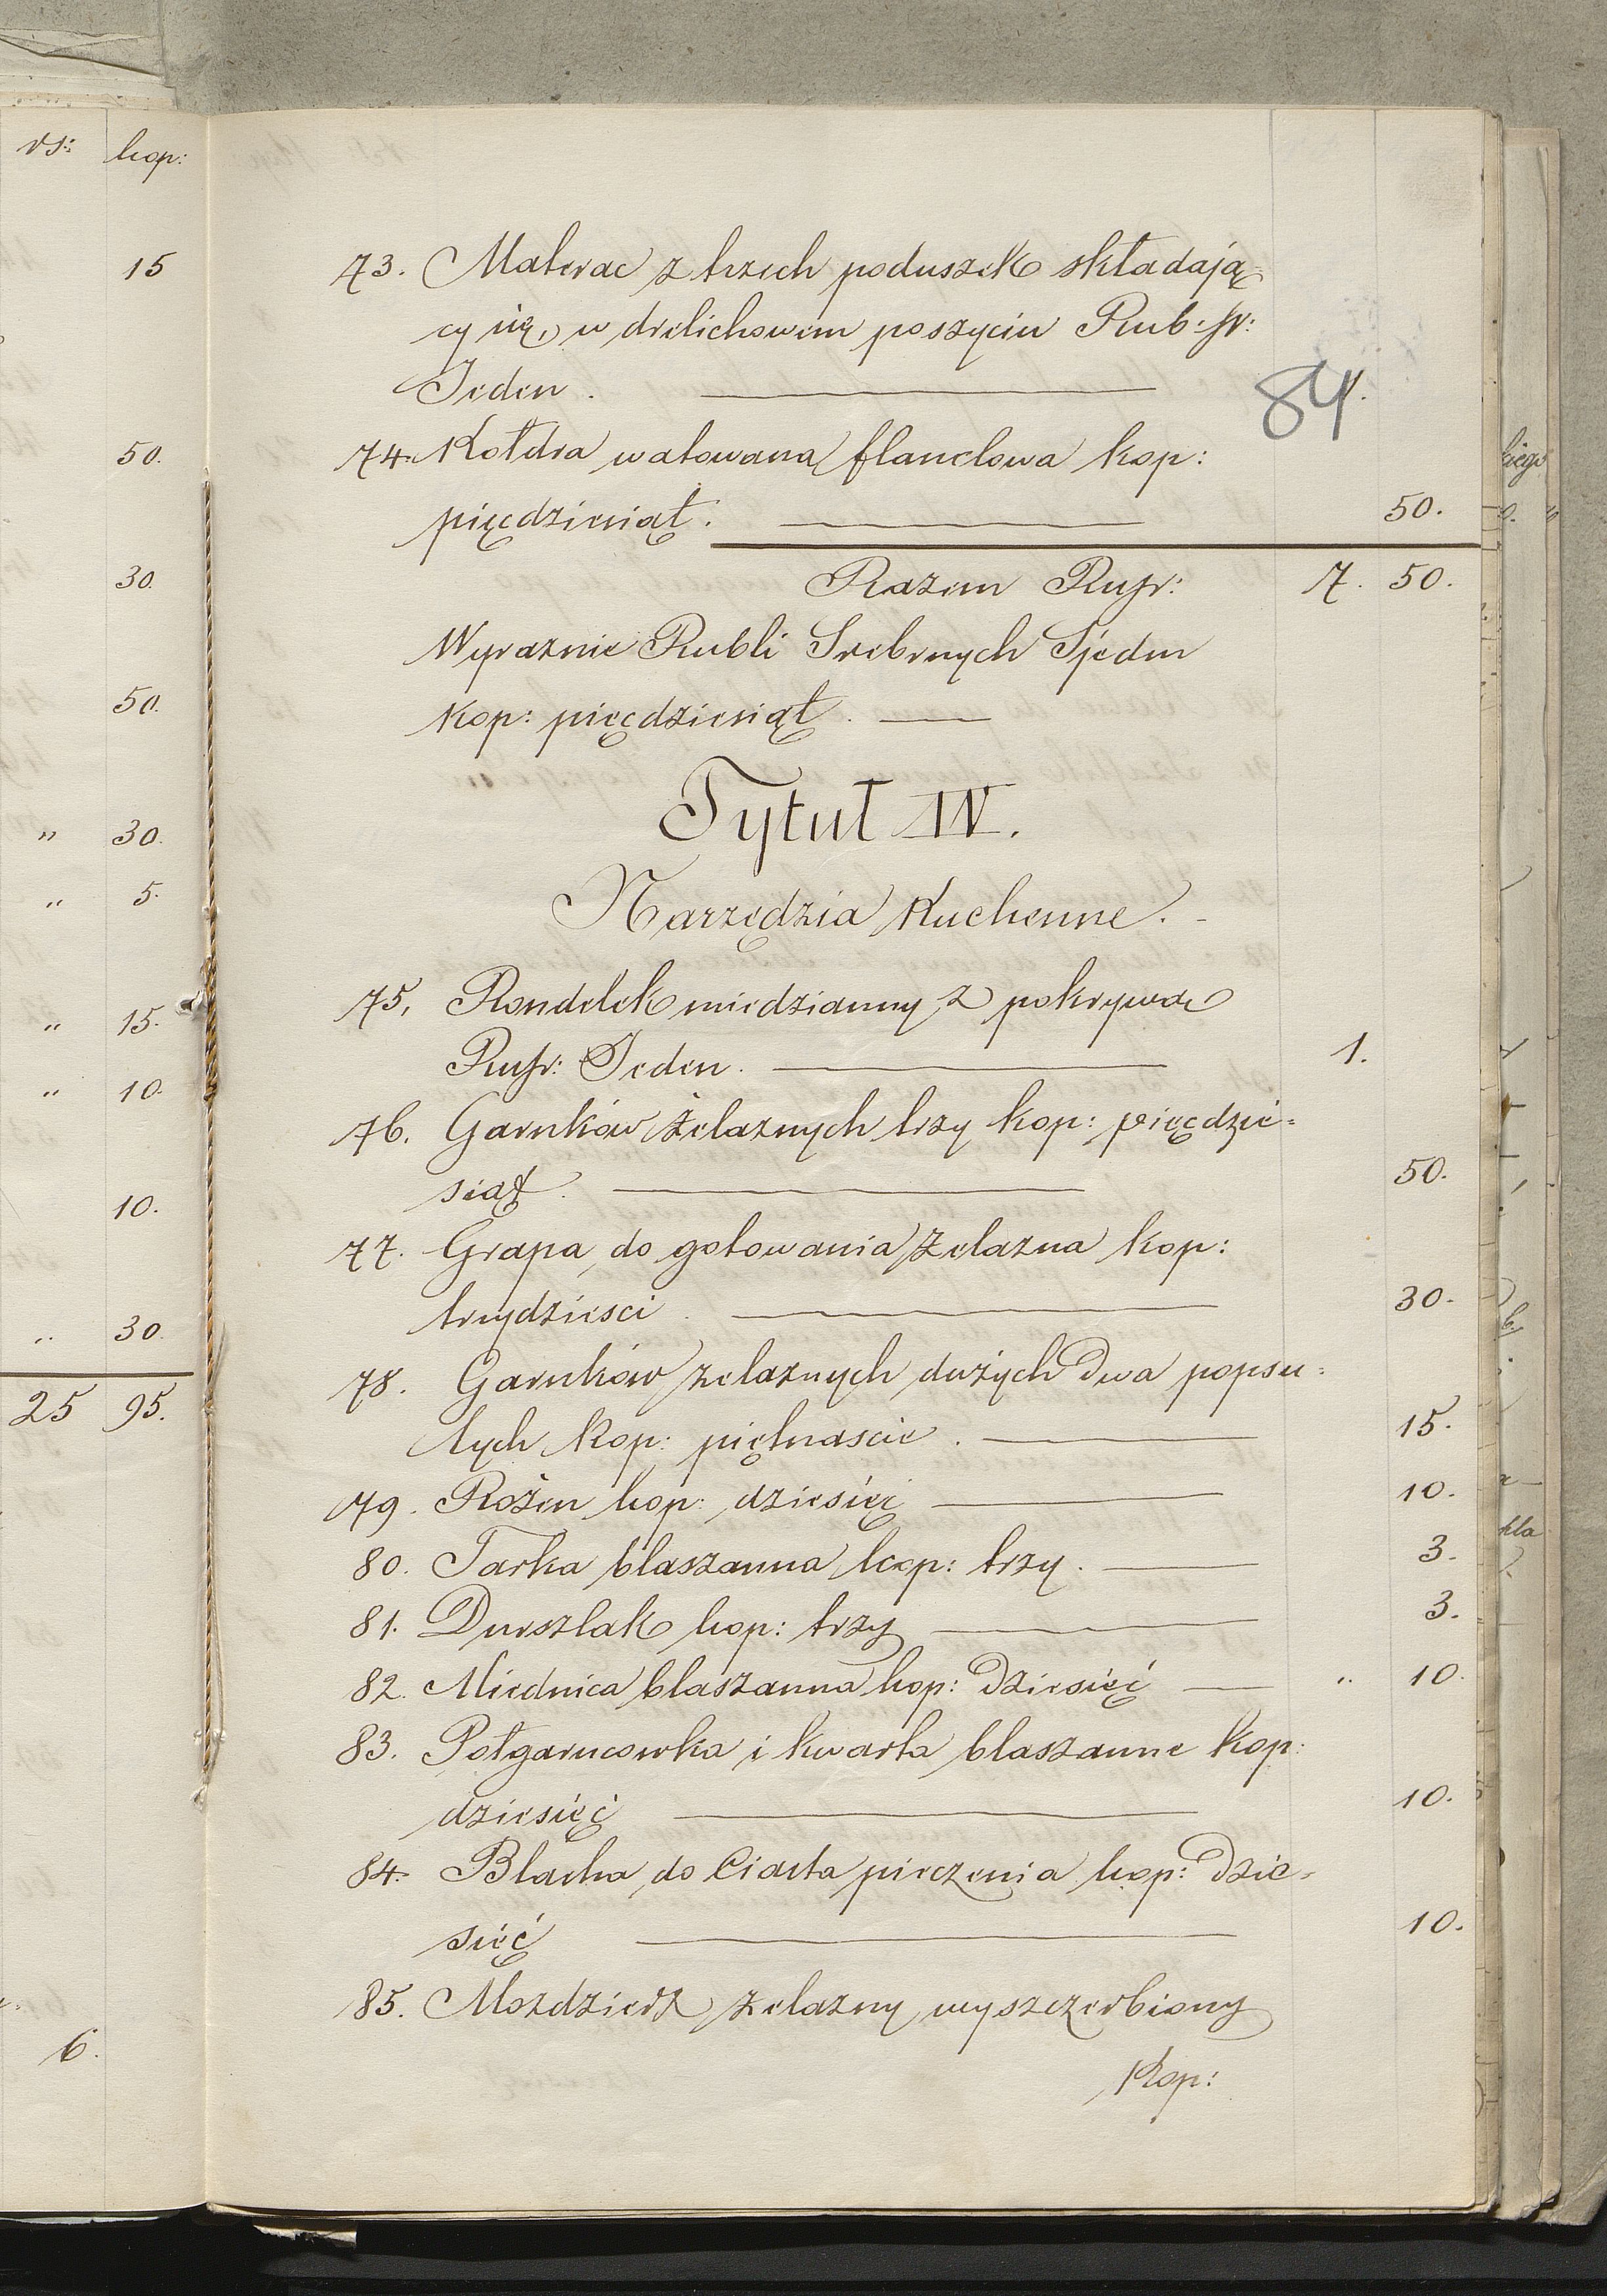 rs: kop:
15
50.
30.
50.
" 30.
" 5.
" 15.
" 10.
10.
" 30
25 95.
6.
84
73. Materac z trzech poduszek składają=
cy się, w drelichowem poszyciu Rub: sr:
Jeden. 1.
74. Kołdra watowana flanelowa kop:
pięćdziesiąt. 50.
Razem Rusr: 7. 50.
Wyraznie Rubli Srebrnych Siedm
kop: pięćdziesiąt.
Tytuł IV.
Narzędzia Kuchenne.
75. Rondelek miedzianny z pokrywą
Rusr: Jeden. 1.
76. Garnków żelaznych trzy kop: pięćdzie=
siąt. 50.
77. Grapa do gotowania żelazna kop:
trzydziesci. 30.
78. Garnków żelaznych dużych dwa popsu=
tych kop: piętnascie. 15.
79. Rożen kop: dziesięć 10.
80. Tarka blaszanna kop: trzy. 3.
81. Durszlak kop: trzy 3.
82. Miednica blaszanna kop: dziesięć " 10.
83. Połgarncowka i kwarta blaszanne kop:
dziesięć 10.
84. Blacha do Ciasta pieczenia kop: dzie=
sięć 10.
85. Mozdzierz żelazny wyszczerbiony
Kop: